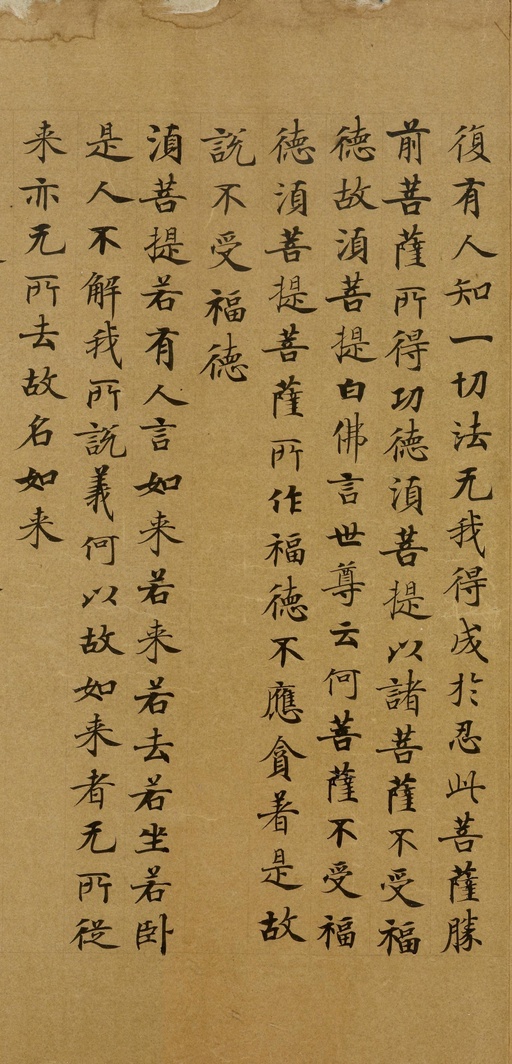 復有人知一切法无我得成於忍此菩薩勝
前菩薩所得功德湏菩提以諸菩薩不受福
德故湏菩提白佛言世尊云何菩薩不受福
德湏菩提菩薩所作福德不應貪著是故
說不受福德
湏菩提若有人言如来若来若去若坐若卧
是人不解我所說義何以故如来者无所從
来亦无所去故名如来